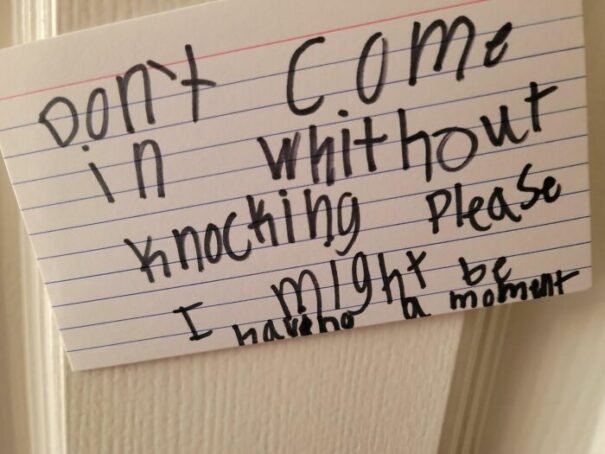 Don't Come
in whithout
knocking Please
I might be
having a moment